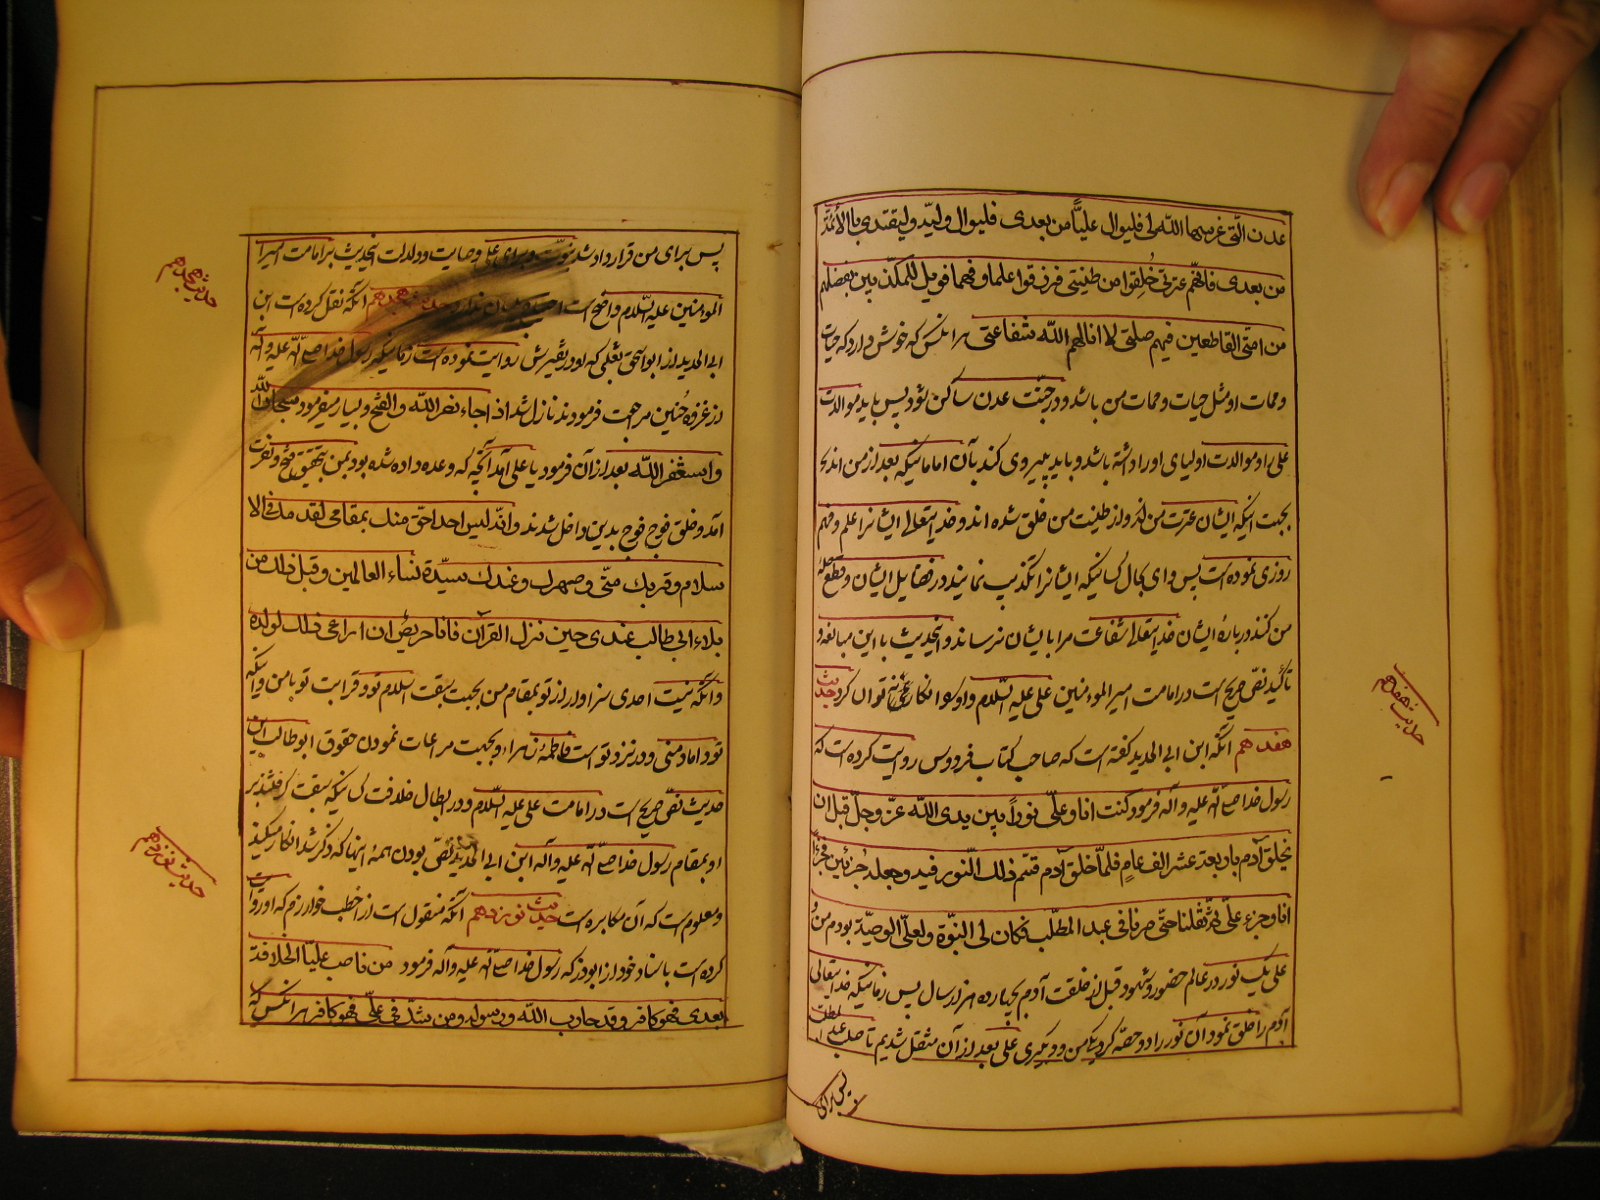 عدن الّتی غرسها اللّه لی فلیوال علیّاً من بعدی فلیوال ولیّه ولیقتدی بالائمّة
من بعدی فانّهم عترتی خُلقوا من طینتی فرزقوا علما و فهما فویل للمکذّبین بفضلهم
من امتی القاطعین فیهم صلتی لا انالهم اللّه شفاعتی هر انکس که خوش دارد که حیات
و ممات او مثل حیات و ممات من باشد و در جنّت عدن ساکن شود پس باید موالات
علی را و موالات اولیای او را داشته باشد و باید پیروی کند بآن امامانیکه بعد از من اند
بجهت اینکه ایشان عترت من اند و از طینت من خلق شده اند و خدایتعالی ایشانرا علم و فهم
روزی نموده است پس وای بحال کسانیکه ایشانرا تکذیب نمایند در فضایل ایشان و قطع صلهٔ
من کنند در بارهٔ ایشان خدایتعالی شفاعت مرا بایشان نرساند و اینحدیث با این مبالغه و
تاکید نصّ صریح است در امامت امیر المومنین علی علیه السّلام و اولاد او انکار نمی توان کرد حدیث
هفدهم آنکه ابن ابی الحدید گفته است که صاحب کتاب فردوس روایت کرده است که
رسول خدا صلّی اللّه علیه و آله فرمود کنت انا و علّی نوراً بین یدی اللّه عزّ و جلّ قبل ان
یخلق آدم باربعة عشر الف عامٍ فلمّا خلق آدم قسّم ذلک النّور فیه و جعله جُزئین فجزءٌ
انا و جزء علّی ثمّ نقلنا حتّی صرنا فی عبد المطّلب فکان لی النبوّة و لعلّی الوصیّة بودم من و
علی یک نور در عالم حضور و شهود قبل از خلقت آدم بچهارده هزار سال پس زمانیکه خدایتعالی
آدم را خلق نمود آن نور را دو حصّه کرد یکی من و دیگری علی بعد از آن منتقل شدیم تا صلب عبد المطلب
پس برای
حدیث هفدهم
پس برای من قرار داد شد نبوّت و برای علی وصایت و دلالت اینحدیث بر امامت امیر
المومنین علیه السّلام واضح است احتیاج ببیان ندارد حدیث هجدهم آنکه نقل کرده است ابن
ابی الحدید از ابو اسحق ثعلبی که او در تفسیرش روایت نموده است زمانیکه رسول خدا صلّی اللّه علیه و آله
از غزوه حُنین مراجعت فرمودند نازل شد اذا جاء نصر اللّه و الفتح و بسیار میفرمود سبحان اللّه
و استغفر اللّه بعد از آن فرمود یا علی آمد آنچه که وعده داده شده بود بمن بتحقیق فتح و نصرت
آمد و خلق فوج فوج بدین داخل شدند و انّه لیس احد احقّ منک بمقامی لقدمک فی الا
سلام و قربک منّی و صهرک و عندک سیّدة نساء العالمین و قبل ذلک من
بلاء ابی طالب عندی حین نزل القرآن فانا حریصٌ ان اراعی ذلک لولده
و آنکه نیست احدی سزاوارتر از تو بمقام من بجهت سبقت اسلام تو و قرابت تو با من و اینکه
تو داماد منی و در نزد تو است فاطمهٔ زهرا و بجهت مراعات نمودن حقوق ابو طالب این
حدیث نصّ صریح است در امامت علی علیه السّلام و در ابطال خلافت کسانیکه سبقت گرفتند بر
او بمقام رسول خدا صلّی اللّه علیه و آله ابن ابی الحدید نصّ بودن همهٔ اینها که ذکر شد انکار میکند
و معلوم است که آن مکابره است حدیث نوزدهم آنکه منقول است از اخطب خوارزم که او روایت
کرده است باسناد خود از ابوذر که رسول خدا صلّی اللّه علیه و آله فرمود من ناصب علیّا الخلافة
بعدی فهو کافر و قد حارب اللّه و رسوله و من شکّ فی علّی فهو کافر هر انکس که
حدیث هجدهم
حدیث نوزدهم